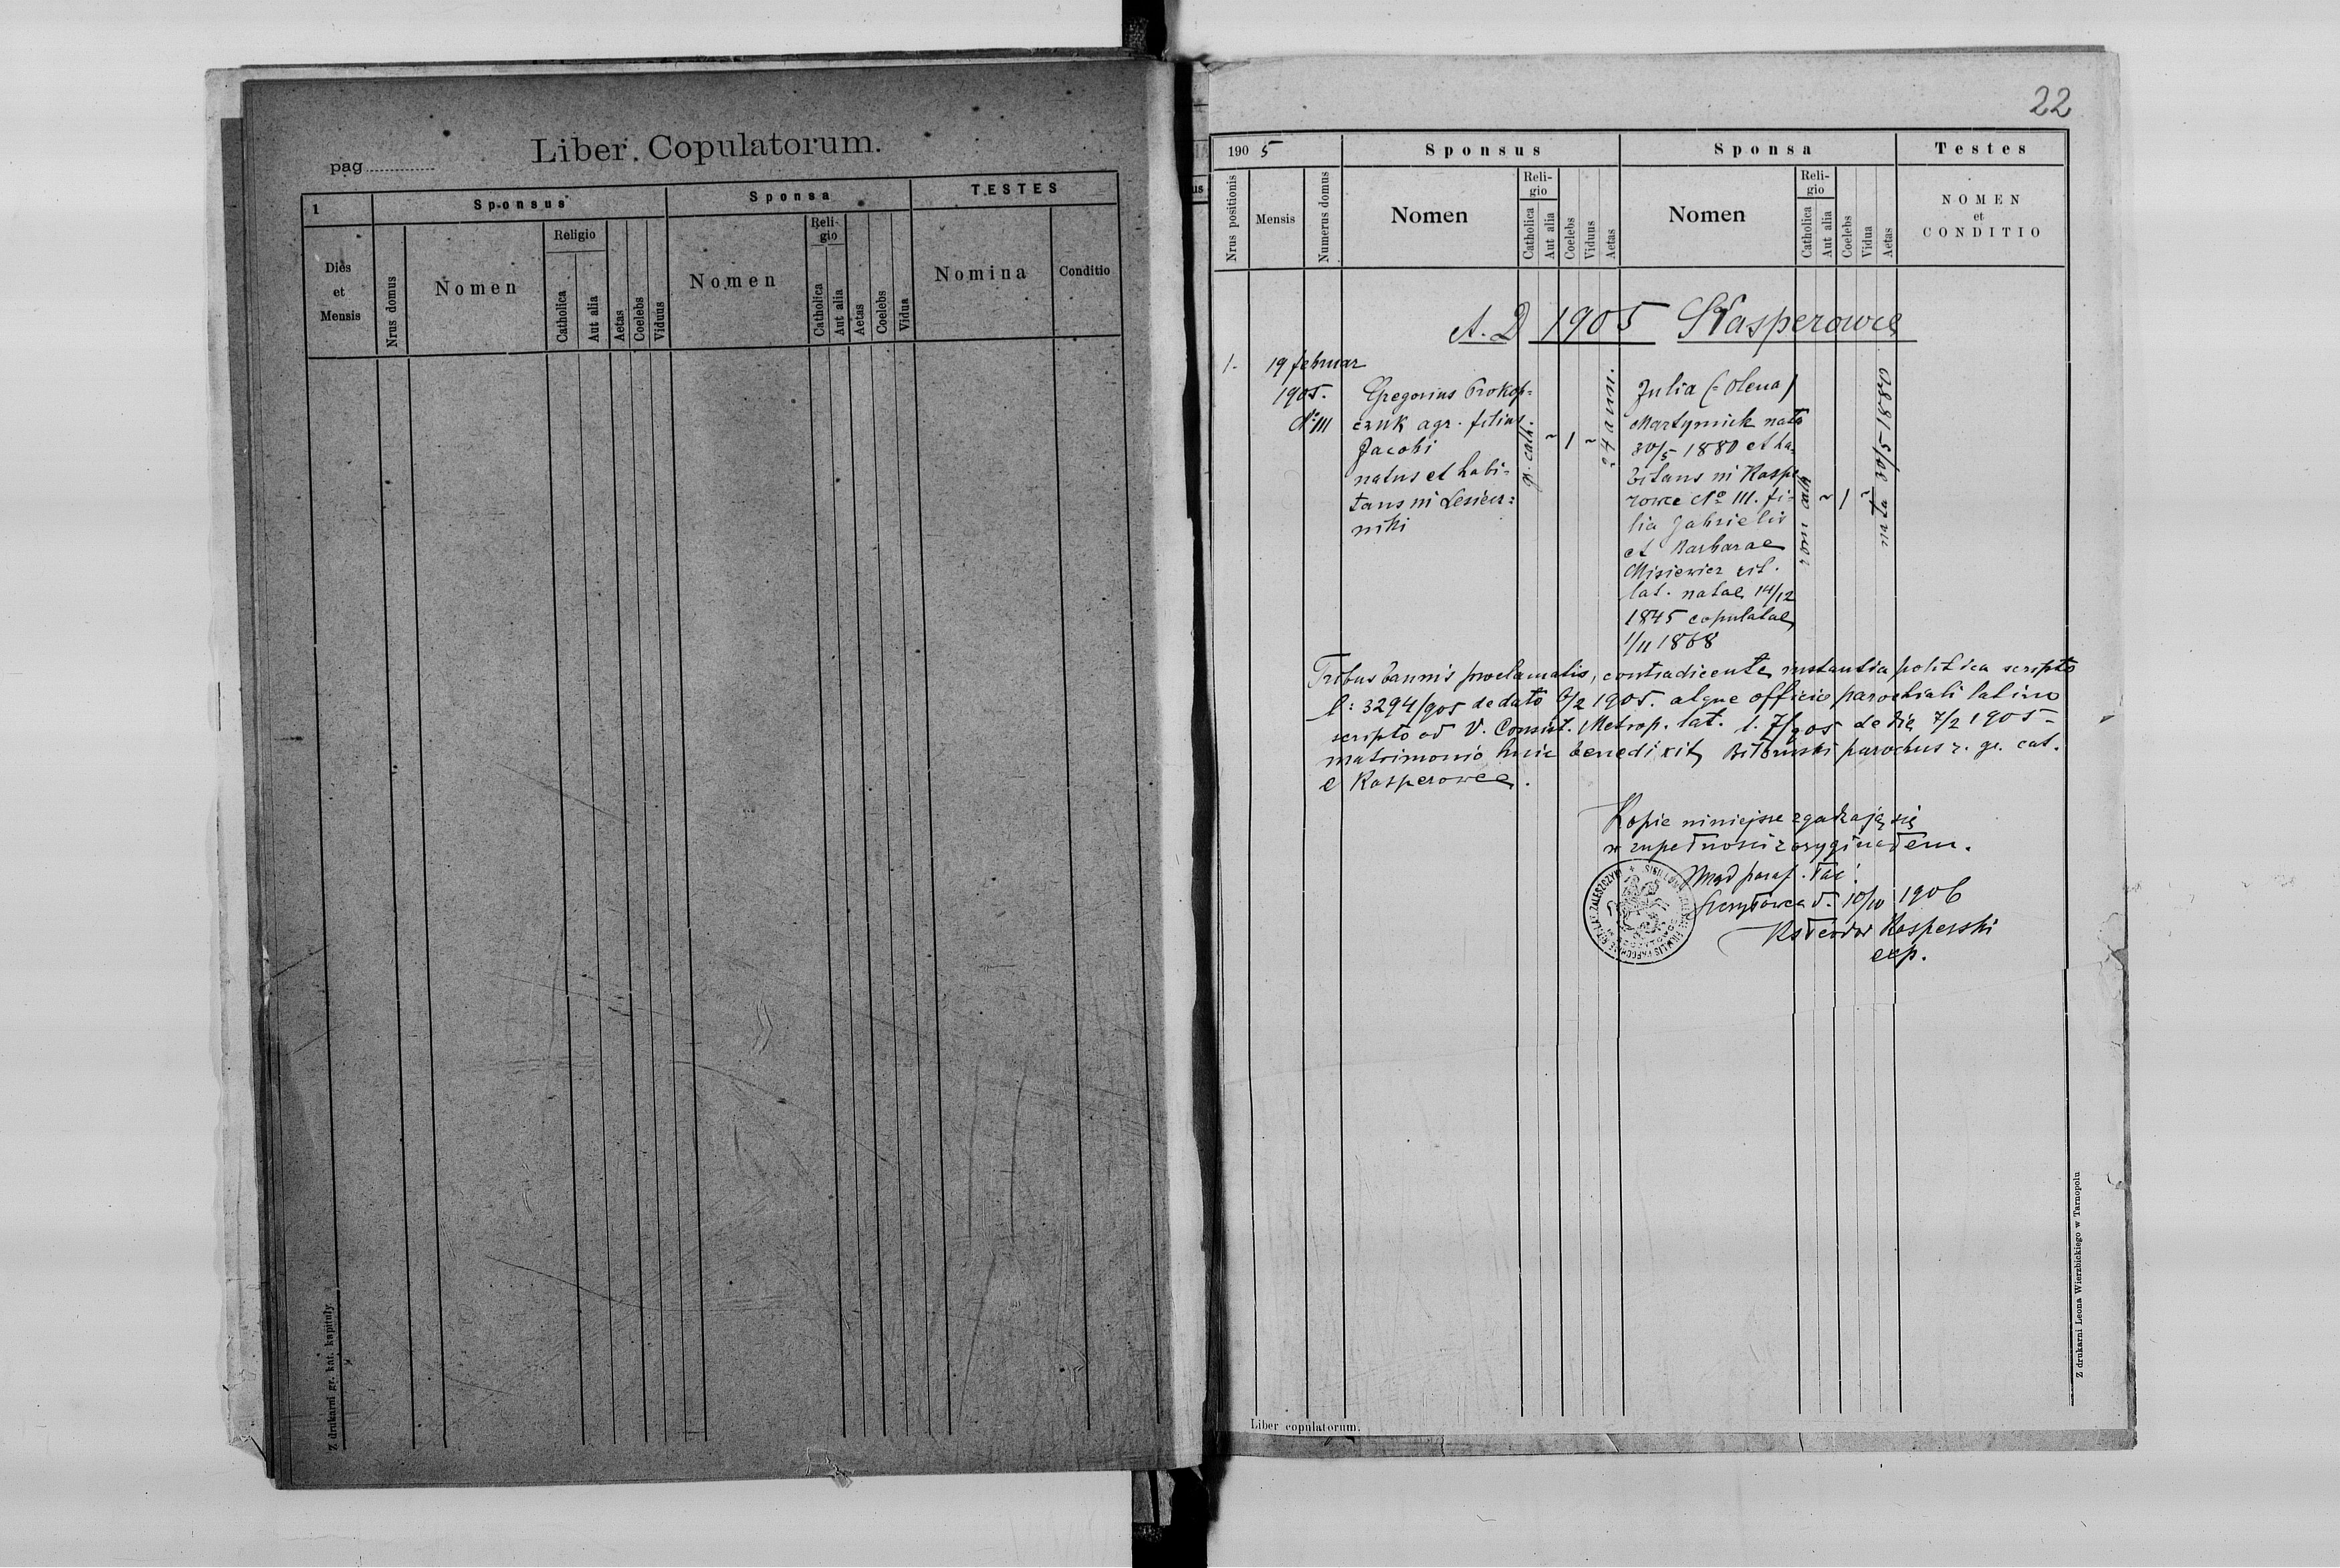 Liber Copulatorum.
pag
1
Sponsus
Sponsa
TESTES
Dies
et
Mensis
Nrus domus
Nomen
Religio
Catholica
Aut alia
Aetas
Coelebs
Viduus
Nomen
Reli-
gio
Catholica
Aut alia
Aetas
Coelebs
Vidua
Nomina
Conditio
Z drukarni gr. kat. kapituły.
22
1905
Sponsus
Sponsa
Testes
Nrus positionis
Mensis
Numerus domus
Nomen
Reli-
gio
Catholica
Aut alia
Coelebs
Viduus
Aetas
Nomen
Reli-
gio
Catholica
Aut alia
Coelebs
Vidua
Aetas
NOMEN
et
CONDITIO
A. D 1905 Kasperowce
1.
19 februar
1905.
No III
Gregorius Prokop=
czuk agr. filius
Jacobi
natus et habi-
tans in Lesiecz=
niki
gr. cath.
~
1
~
24 ann.
Julia (=Olena)
Martyniuk nata
30/5 1880 et ha-
bitans in Kaspe
rowce No III. fi-
lia Gabrielis
et Barbarae
Misiewicz rit.
lat. natae 14/12
1845 copulatae
1/11 1868
rom cath
~
1
~
nata 30/5 1880
Tribus bannis proclamatis, contradicente instantia politica scripto
l: 3294/905 de dato 2 1905. atque officio parochiali latino
scripto od V. Consist. Metrop. lat. l. 7/905 de die 7/2 1905 -
matrimonio huic benedixit parochus r. gr. cat.
e Kasperowce.
Kopie niniejsze zgadzają się
w zupełności z oryginałem.
Urząd paraf. łac.
d. 10/10 1906
Ks Teodor Kasperski
exp.
Liber copulatorum.
Z drukarni Leona Wierzbickiego w Tarnopolu